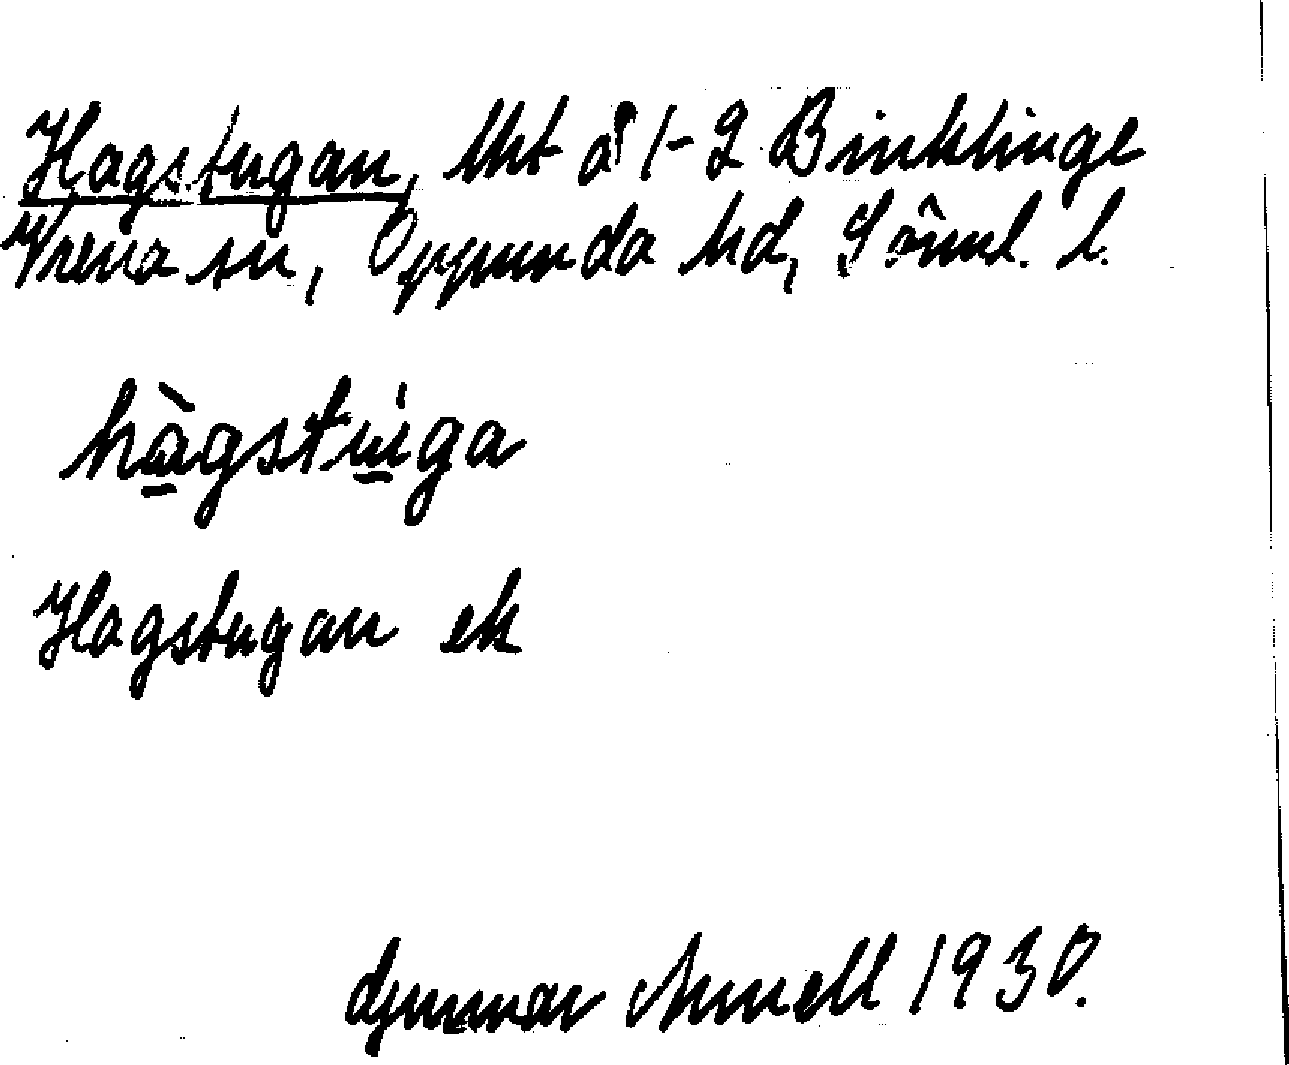 Hagstugan, lht å 1-2 Binklinge
Vrena sn, Oppunda hd, Söml. l.
hàgstu̇ga
Hagstugan ek
Gunnar Amnell 1930.